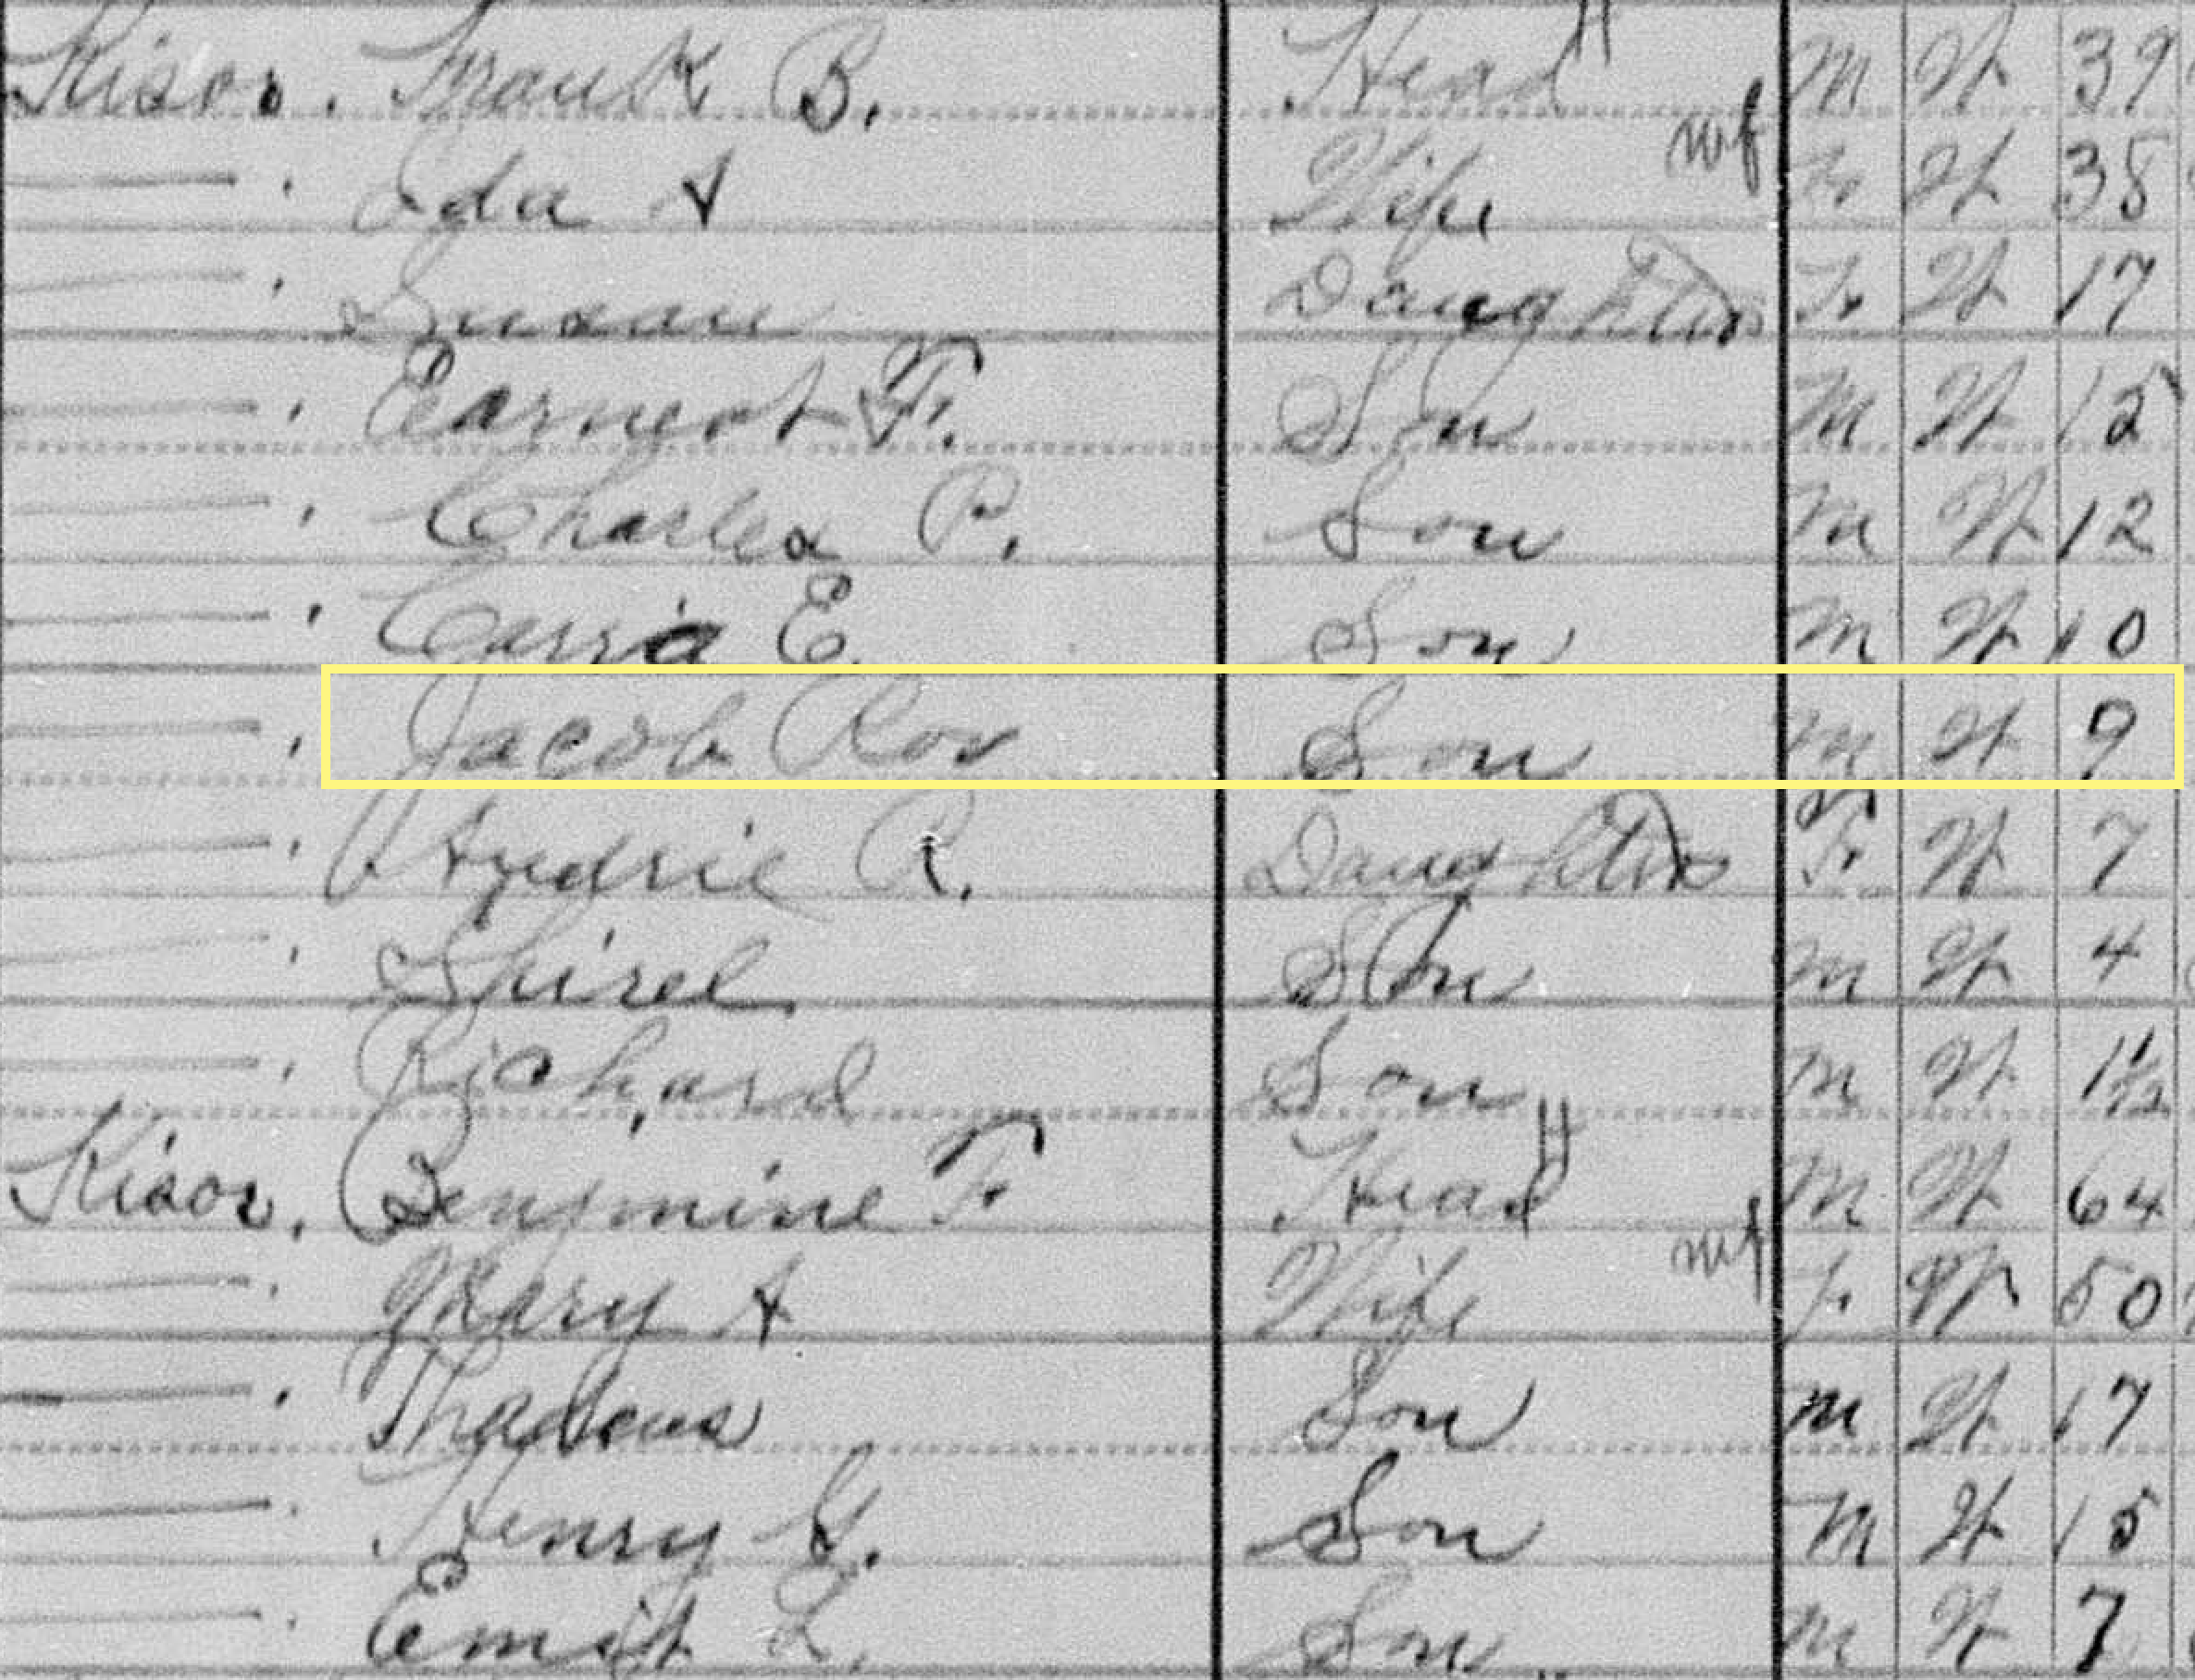 Kisor. Frank B. Head M W 39
— Ida A Wife wf F W 38
— Susan Daughter F W 17
— Earnest F. Son M W 15
— Charles P. Son M W 12
— E. Son M W 10
— Jacob Roy Son M W 9
— Audrie R. Daughter F W 7
— Shirel Son M W 4
— Richard Son M W 1½
Kisor. Bengmine F Head M W 64
— Mary A Wife wf F W 50
— Thadeus Son M W 17
— Henry G. Son M W 15
— Emit L. Son M W 7